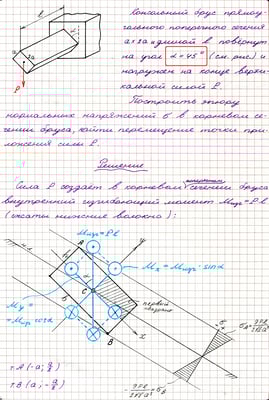 Консольный брус прямоу-
гольного поперечного сечения
a x 2a и длиной ℓ повернут
на угол α = 45° (см. рис) и
нагружен на конце верти-
кальной силой P.
Построить эпюру
нормальных напряжений σ в корневом се-
чении бруса, найти перемещение точки при-
ложения силы P.
ℓ
a
2a
α
P
Решение
Сила P создаёт в корневом сечении бруса
внутренний изгибающий момент Mизг = Pℓ
(сжаты нижние волокна):
Mизг = Pℓ
y
A
Mx = Mизг · sin α
α
C
My =
= Mизг cos α
h
b
B
x
н.л.
т. A (-a; a/2)
т. B (a; -a/2)